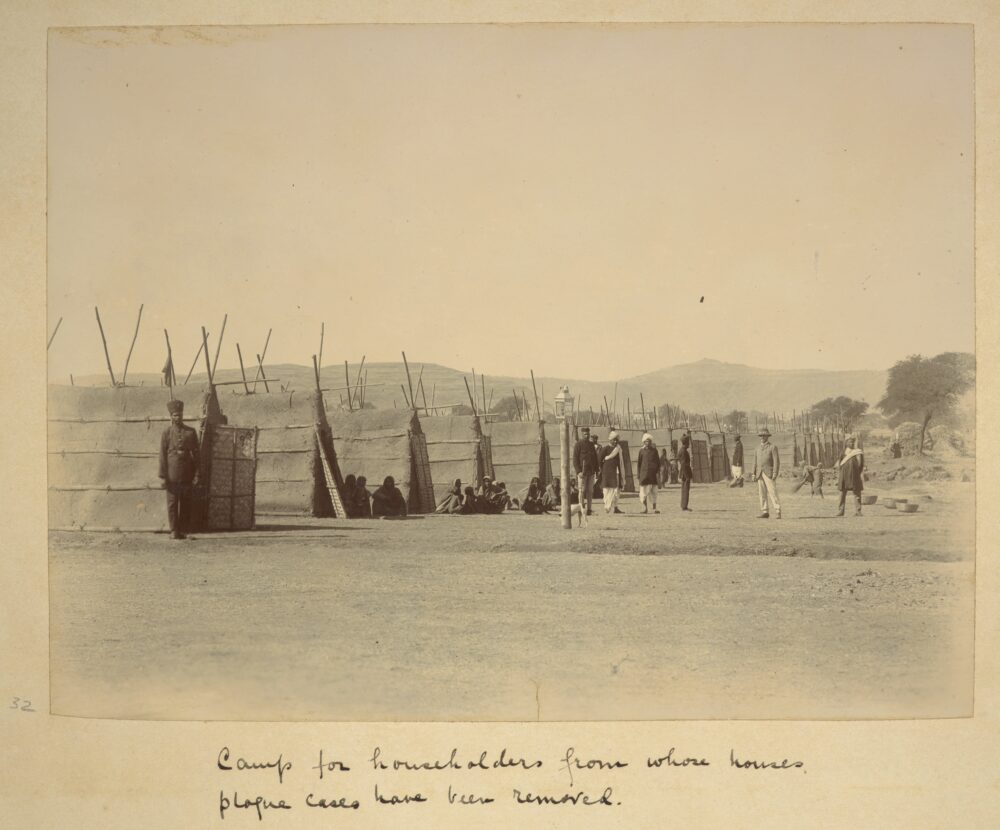 32
Camp for householders from whose houses
plague cases have been removed.